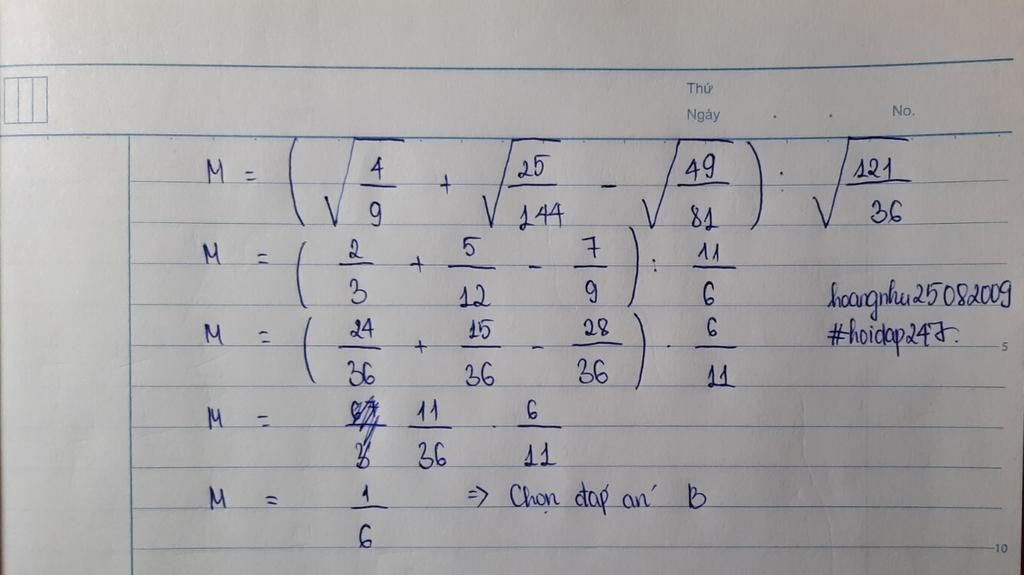 Thứ
Ngày . . No.
M = ( √(4/9) + √(25/144) − √(49/81) ) : √(121/36)
M = ( 2/3 + 5/12 − 7/9 ) : 11/6
hoangnhu25082009
M = ( 24/36 + 15/36 − 28/36 ) . 6/11
#hoidap247.
5
M = 11/36 . 6/11
M = 1/6 => Chọn đáp án B
10